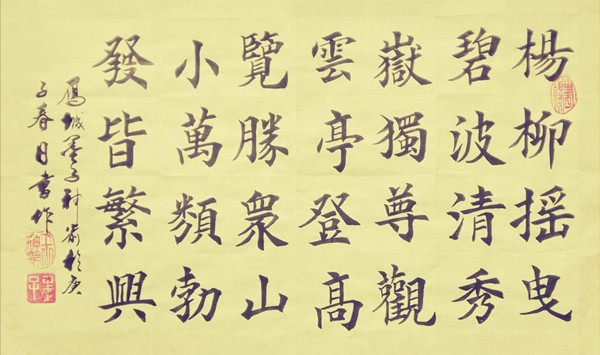 楊柳摇曳
碧波清秀
嶽獨尊觀
雲亭登高
覽勝衆山
小萬類勃
發皆繁興
於庚
子春月書作